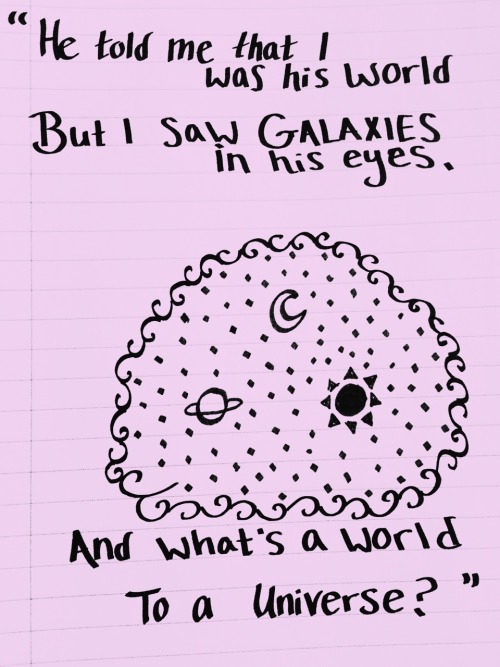 “He told me that I
was his world
But I saw GALAXIES
in his eyes.
And what's a world
To a Universe?”